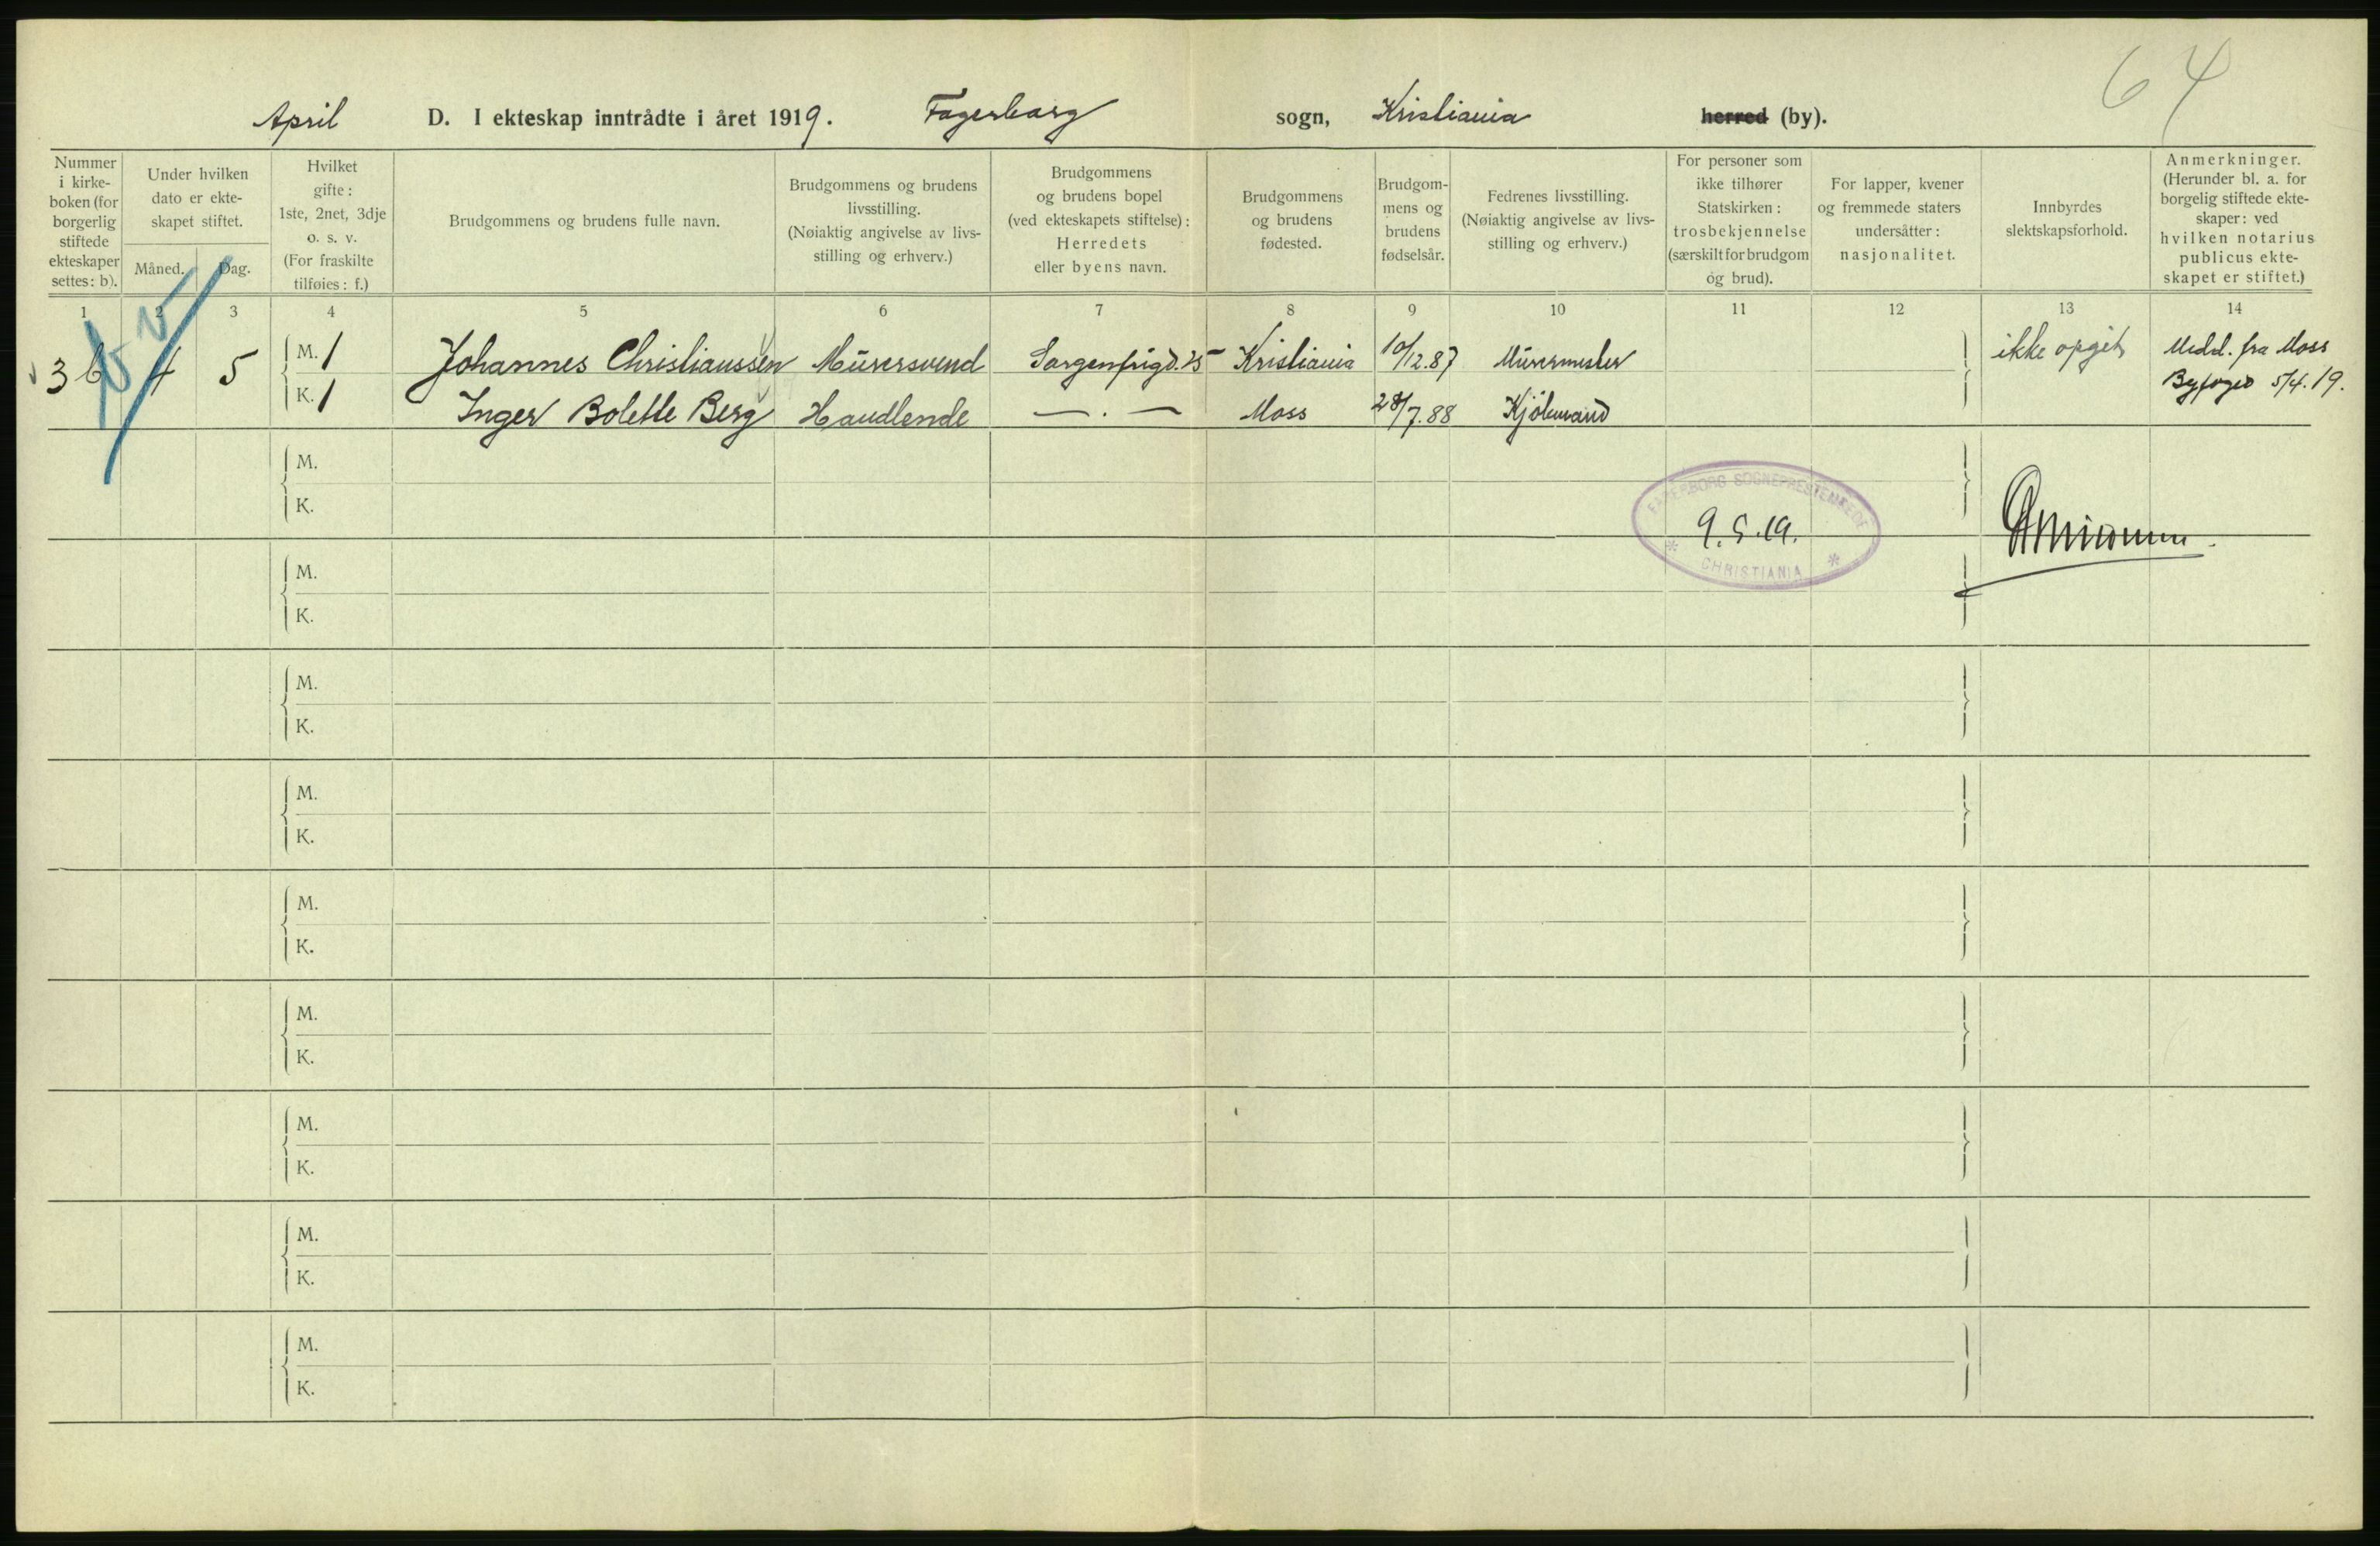 64
April D. I ekteskap inntrådte i året 1919. Fagerborg sogn, Kristiania herred (by).
Nummer
i kirke-
boken (for
borgerlig
stiftede
ekteskaper
settes: b).
Under hvilken
dato er ekte-
skapet stiftet.
Måned.
Dag.
Hvilket
gifte:
1ste, 2net, 3dje
o. s. v.
(For fraskilte
tilføies: f.)
Brudgommens og brudens fulle navn.
Brudgommens og brudens
livsstilling.
(Nøiaktig angivelse av livs-
stilling og erhverv.)
Brudgommens
og brudens bopel
(ved ekteskapets stiftelse):
Herredets
eller byens navn.
Brudgommens
og brudens
fødested.
Brudgom-
mens og
brudens
fødselsår.
Fedrenes livsstilling.
(Nøiaktig angivelse av livs-
stilling og erhverv.)
For personer som
ikke tilhører
Statskirken:
trosbekjennelse
(særskilt for brudgom
og brud).
For lapper, kvener
og fremmede staters
undersåtter:
nasjonalitet.
Innbyrdes
slektskapsforhold.
Anmerkninger.
(Herunder bl. a. for
borgelig stiftede ekte-
skaper: ved
hvilken notarius
publicus ekte-
skapet er stiftet.)
1 2 3 4 5 6 7 8 9 10 11 12 13 14
3 b 4 5 M. 1 Johannes Christianssen Murersvend Sorgenfrigd. 25 Kristiania 10/12.87 Murermester ikke opgit Medd. fra Moss
Byfoged 5/4.19.
K. 1 Inger Bolette Berg Handlende — . — Moss 28/7.88 Kjøbmand
M.
K.
FAGERBORG SOGNEPRESTEMBEDE
9.5.19.
CHRISTIANIA
M.
K.
M.
K.
M.
K.
M.
K.
M.
K.
M.
K.
M.
K.
M.
K.